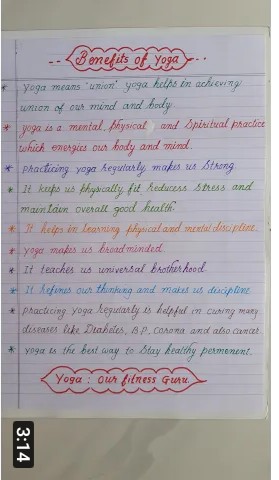 Benefits of Yoga
* Yoga means "union" yoga helps in achieving
union of our mind and body
* yoga is a mental, physical and Spiritual practice
which energies our body and mind.
* Practicing yoga Regularly makes us Strong
* It keeps us physically fit Reducess Stress and
maintain overall good health.
* It helps in learning physical and mental discipline.
* Yoga makes us broad minded.
* It teaches us universal brotherhood.
* It Refines our thinking and makes us discipline
* Practicing yoga Regularly is helpful in curing many
diseases like Diabetes, B.P, Corona and also cancer.
* Yoga is the best way to Stay healthy permenent.
Yoga : Our fitness Guru.
3:14